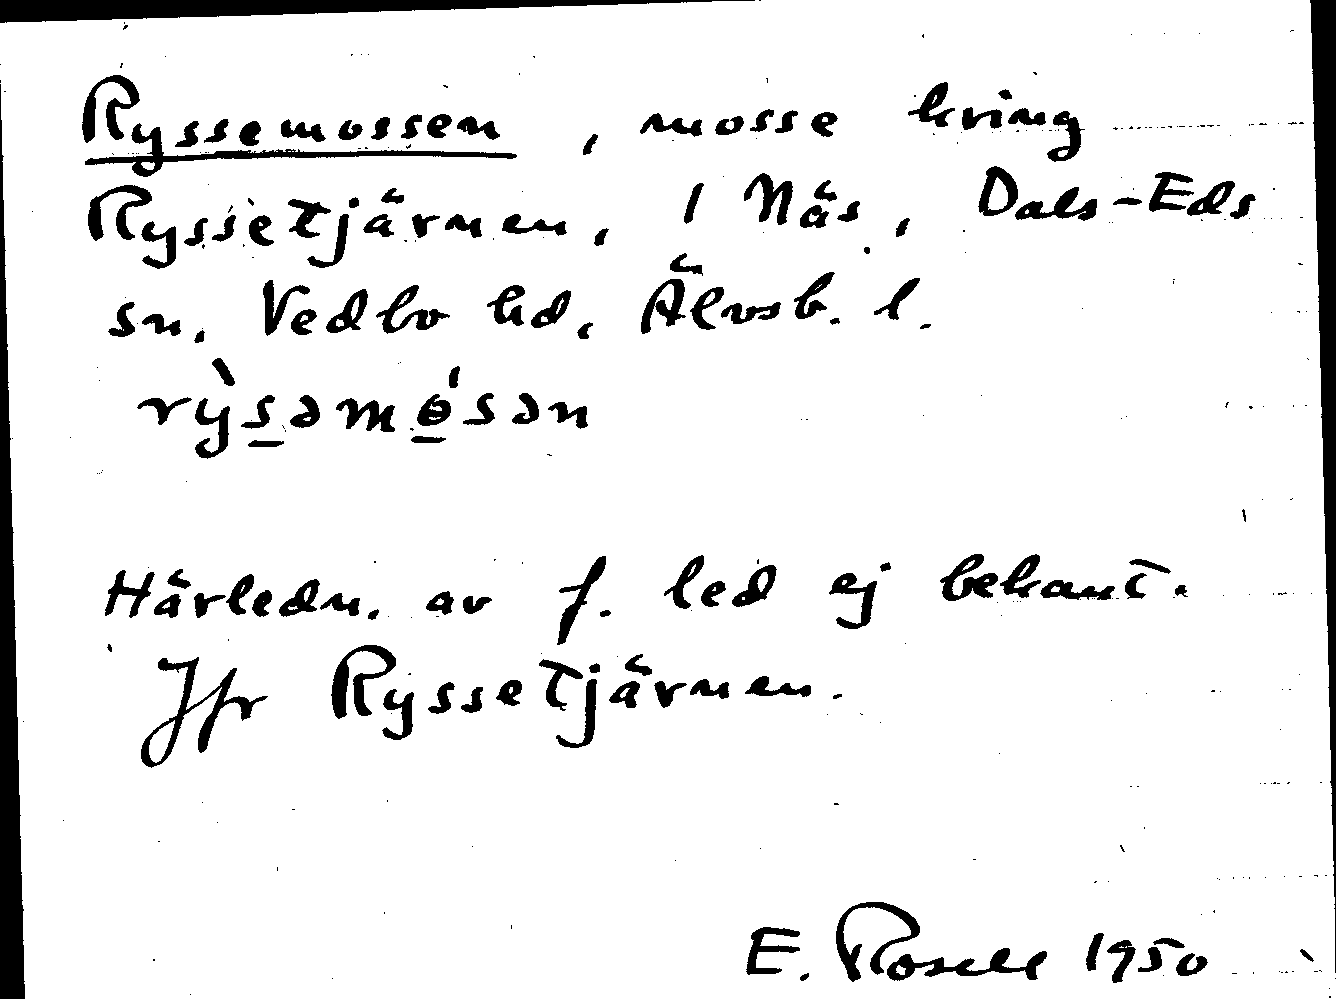 Ryssemossen, mosse kring
Ryssetjärnen, 1 Näs, Dals-Eds
sn, Vedbo hd, Älvsb. l.
rỳs̲əmɵ̲́sən
Härledn. av f. led ej bekant.
Jfr Ryssetjärnen.
E. Rosell 1950